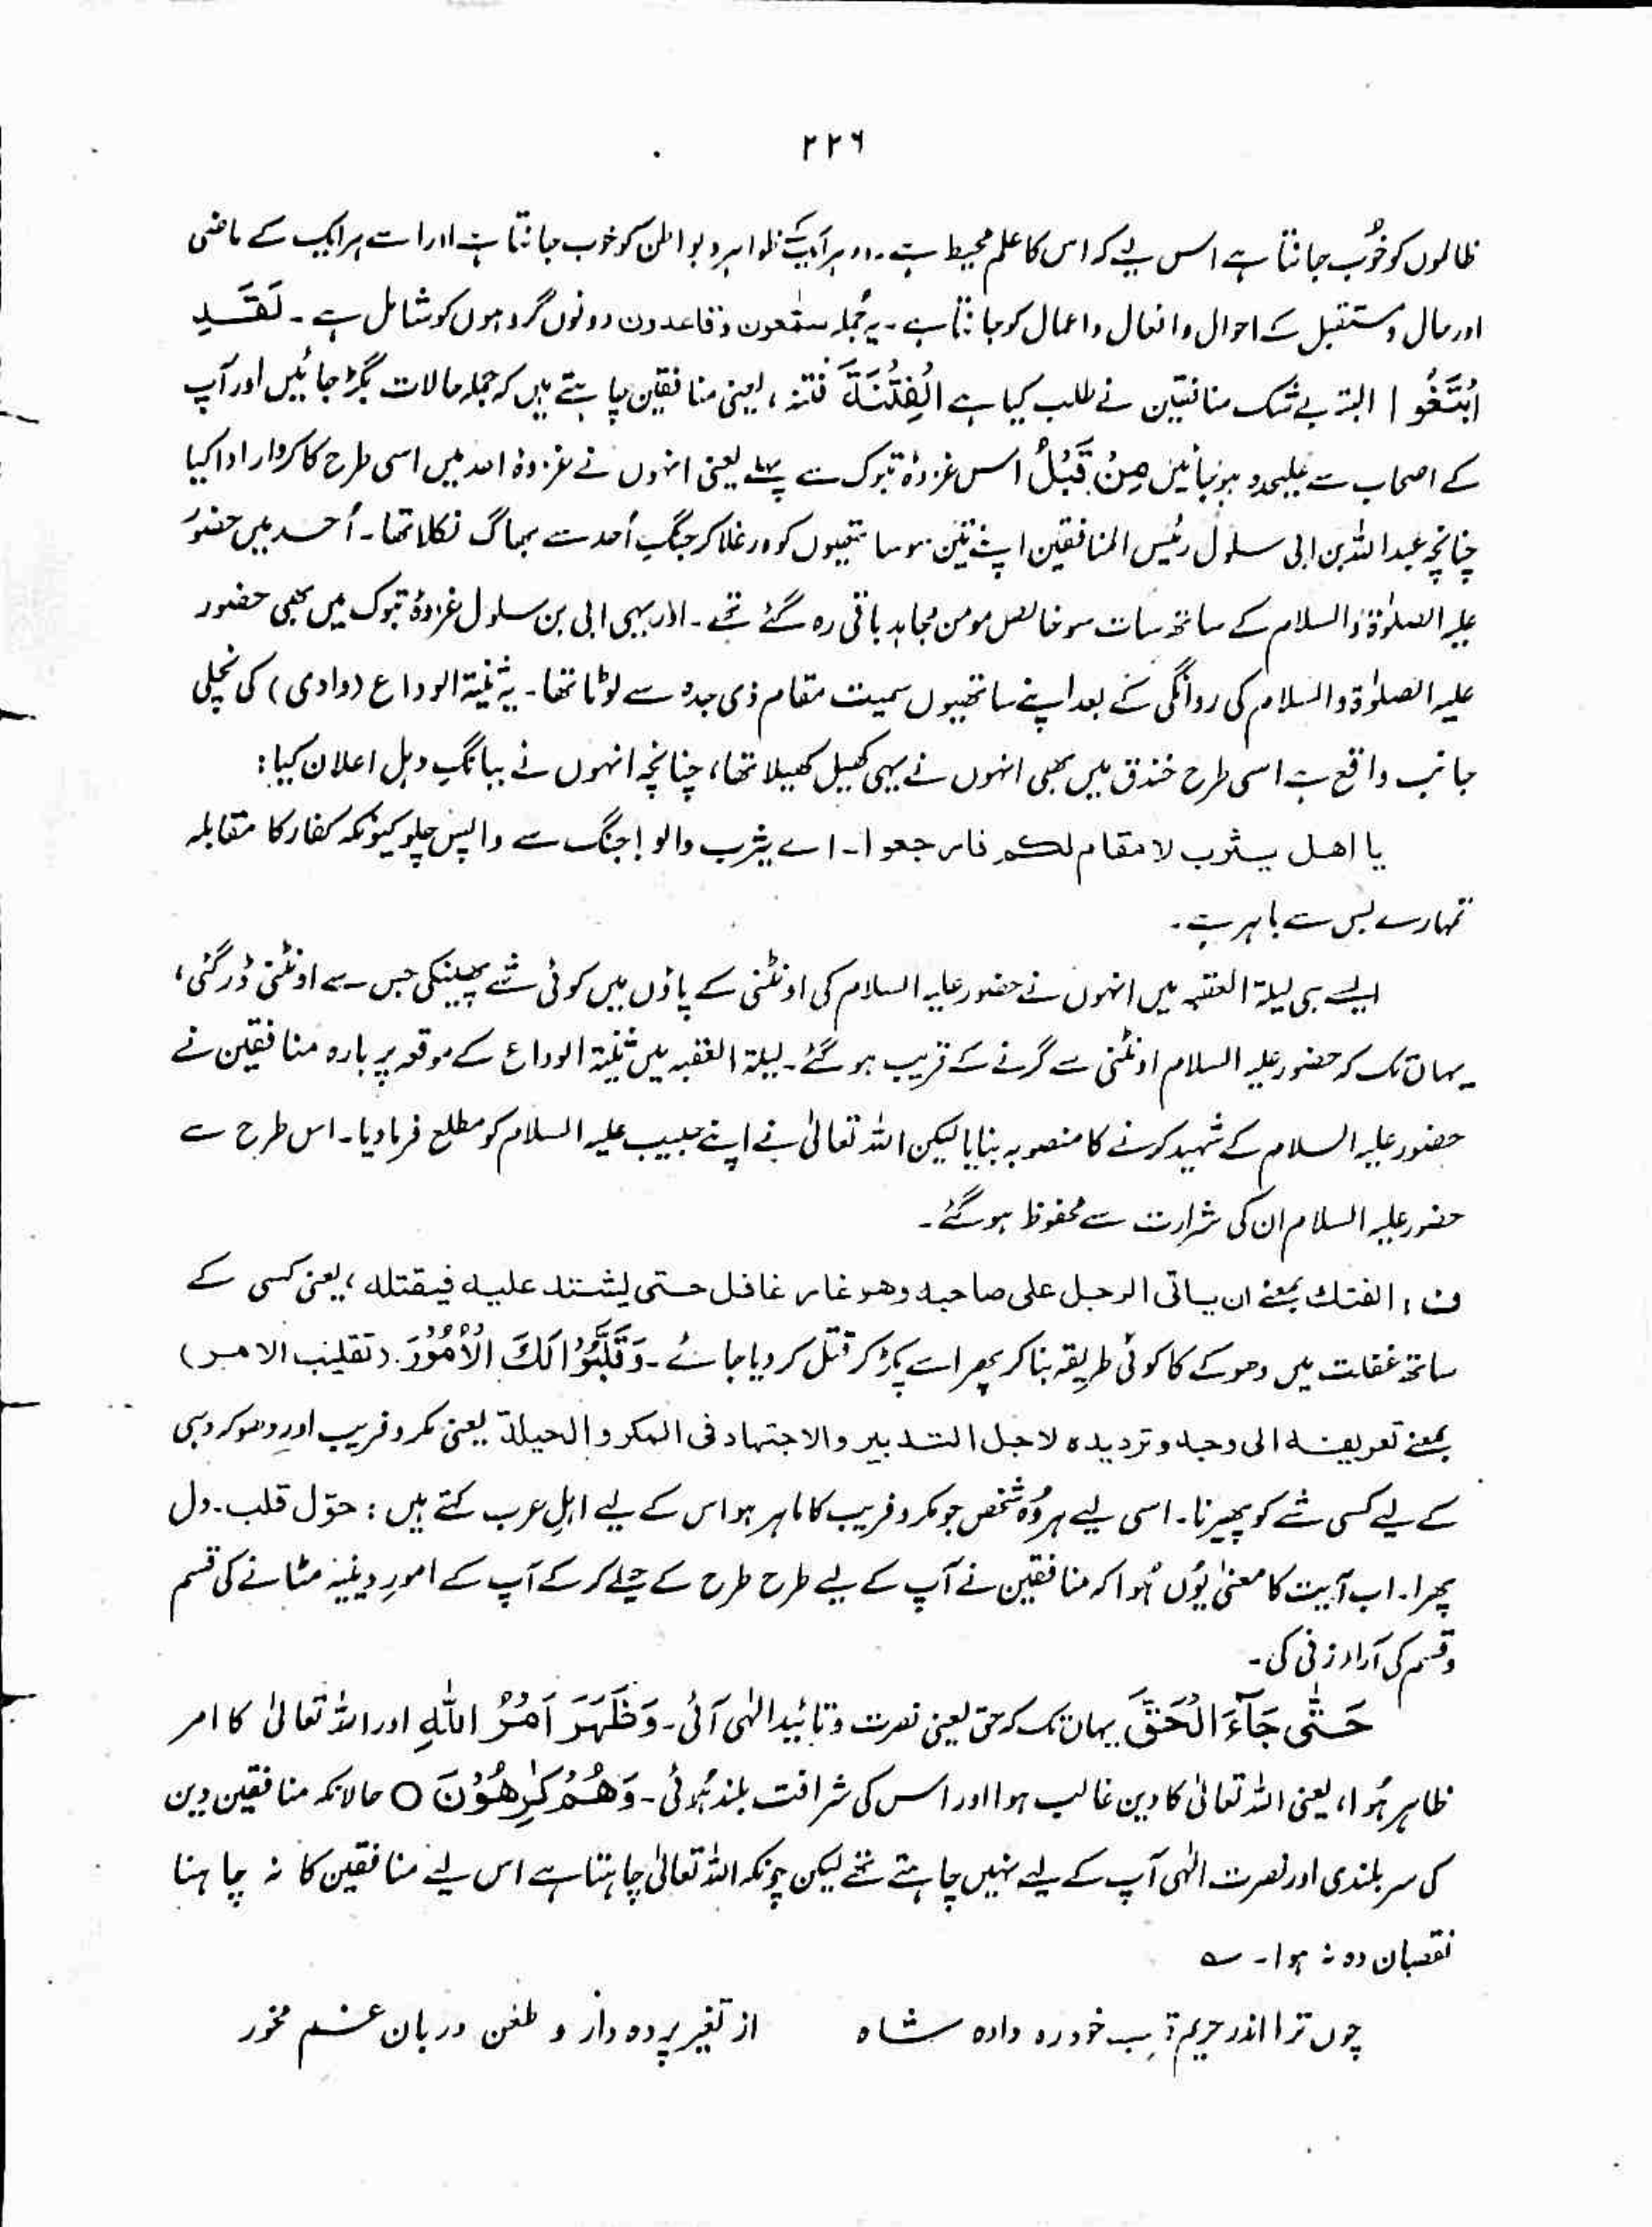 ۲۲۶
ظالموں کو خوُب جانتا ہے اس لیے کہ اس کا علم محیط ہے۔ وہ ہر ایک کے ظواہر و بواطن کو خوب جانتا ہے اور اسے ہر ایک کے ماضی
اور حال و مستقبل کے احوال و افعال و اعمال کو جانتا ہے۔ یہ جُملہ سمّٰعون و قاعدون دونوں گروہوں کو شامل ہے۔ لَقَدِ
ابْتَغَوُا البتہ بے شک منافقین نے طلب کیا ہے الْفِتْنَةَ فتنہ، یعنی منافقین چاہتے ہیں کہ جملہ حالات بگڑ جائیں اور آپ
کے اصحاب سے علیحدہ ہو جائیں مِنْ قَبْلُ اس غزوۂ تبوک سے پہلے یعنی انہوں نے غزوۂ احد میں اسی طرح کا کردار ادا کیا
چنانچہ عبد اللہ بن ابی سلول رئیس المنافقین اپنے تین سو ساتھیوں کو ورغلا کر جنگِ اُحد سے بھاگ نکلا تھا۔ اُحد میں حضورُ
علیہ الصلوٰۃ والسلام کے ساتھ سات سو خالص مومن مجاہد باقی رہ گئے تھے۔ اور یہی ابی بن سلول غزوۂ تبوک میں بھی حضور
علیہ الصلوٰۃ والسلام کی روانگی کے بعد اپنے ساتھیوں سمیت مقام ذی جدہ سے لوٹا تھا۔ یہ ثنیۃ الوداع (وادی) کی نچلی
جانب واقع ہے اسی طرح خندق میں بھی انہوں نے یہی کھیل کھیلا تھا، چنانچہ انہوں نے ببانگِ دہل اعلان کیا:
یا اهل یثرب لا مقام لکم فارجعوا۔ اے یثرب والو! جنگ سے واپس چلو کیونکہ کفار کا مقابلہ
تمہارے بس سے باہر ہے۔
ایسے ہی لیلۃ العقبہ میں انہوں نے حضور علیہ السلام کی اونٹنی کے پاؤں میں کوئی شے پھینکی جس سے اونٹنی ڈر گئی،
یہاں تک کہ حضور علیہ السلام اونٹنی سے گرنے کے قریب ہو گئے۔ لیلۃ العقبہ میں ثنیۃ الوداع کے موقعہ پر بارہ منافقین نے
حضور علیہ السلام کے شہید کرنے کا منصوبہ بنایا لیکن اللہ تعالیٰ نے اپنے حبیب علیہ السلام کو مطلع فرما دیا۔ اس طرح سے
حضور علیہ السلام ان کی شرارت سے محفوظ ہو گئے۔
ف: الفتك بمعنے ان یاتی الرجل علی صاحبه وهو غار غافل حتی یشتد علیه فیقتله، یعنی کسی کے
ساتھ غفلت میں دھوکے کا کوئی طریقہ بنا کر پھر اسے پکڑ کر قتل کر دیا جائے۔ وَقَلَّبُوْا لَكَ الْاُمُوْرَ۔ (تقلیب الامر)
بمعنے تعریفه الی وجه و تردیده لاجل التدبیر والاجتهاد فی المکر والحیلة یعنی مکر و فریب اور دھوکہ دہی
کے لیے کسی شے کو پھیرنا۔ اسی لیے ہر وُہ شخص جو مکر و فریب کا ماہر ہو اس کے لیے اہلِ عرب کہتے ہیں: حوّل قلب۔ دل
پھرا۔ اب آیت کا معنیٰ یُوں ہُوا کہ منافقین نے آپ کے لیے طرح طرح کے حیلے کر کے آپ کے امورِ دینیہ مٹانے کی قسم
و قسم کی آراء زنی کی۔
حَتّٰى جَآءَ الْحَقُّ یہاں تک کہ حق یعنی نصرت و تائید الٰہی آئی۔ وَظَهَرَ اَمْرُ اللّٰهِ اور اللہ تعالیٰ کا امر
ظاہر ہُوا، یعنی اللہ تعالیٰ کا دین غالب ہوا اور اس کی شرافت بلند ہُوئی۔ وَهُمْ كٰرِهُوْنَ ○ حالانکہ منافقین دین
کی سر بلندی اور نصرت الٰہی آپ کے لیے نہیں چاہتے تھے لیکن چونکہ اللہ تعالیٰ چاہتا ہے اس لیے منافقین کا نہ چاہنا
نقصان دہ نہ ہوا۔ ؎
چوں ترا اندر حریم قرب خود رہ دادہ شاہ از نفیر پردہ دار و طعن دربان غم مخور